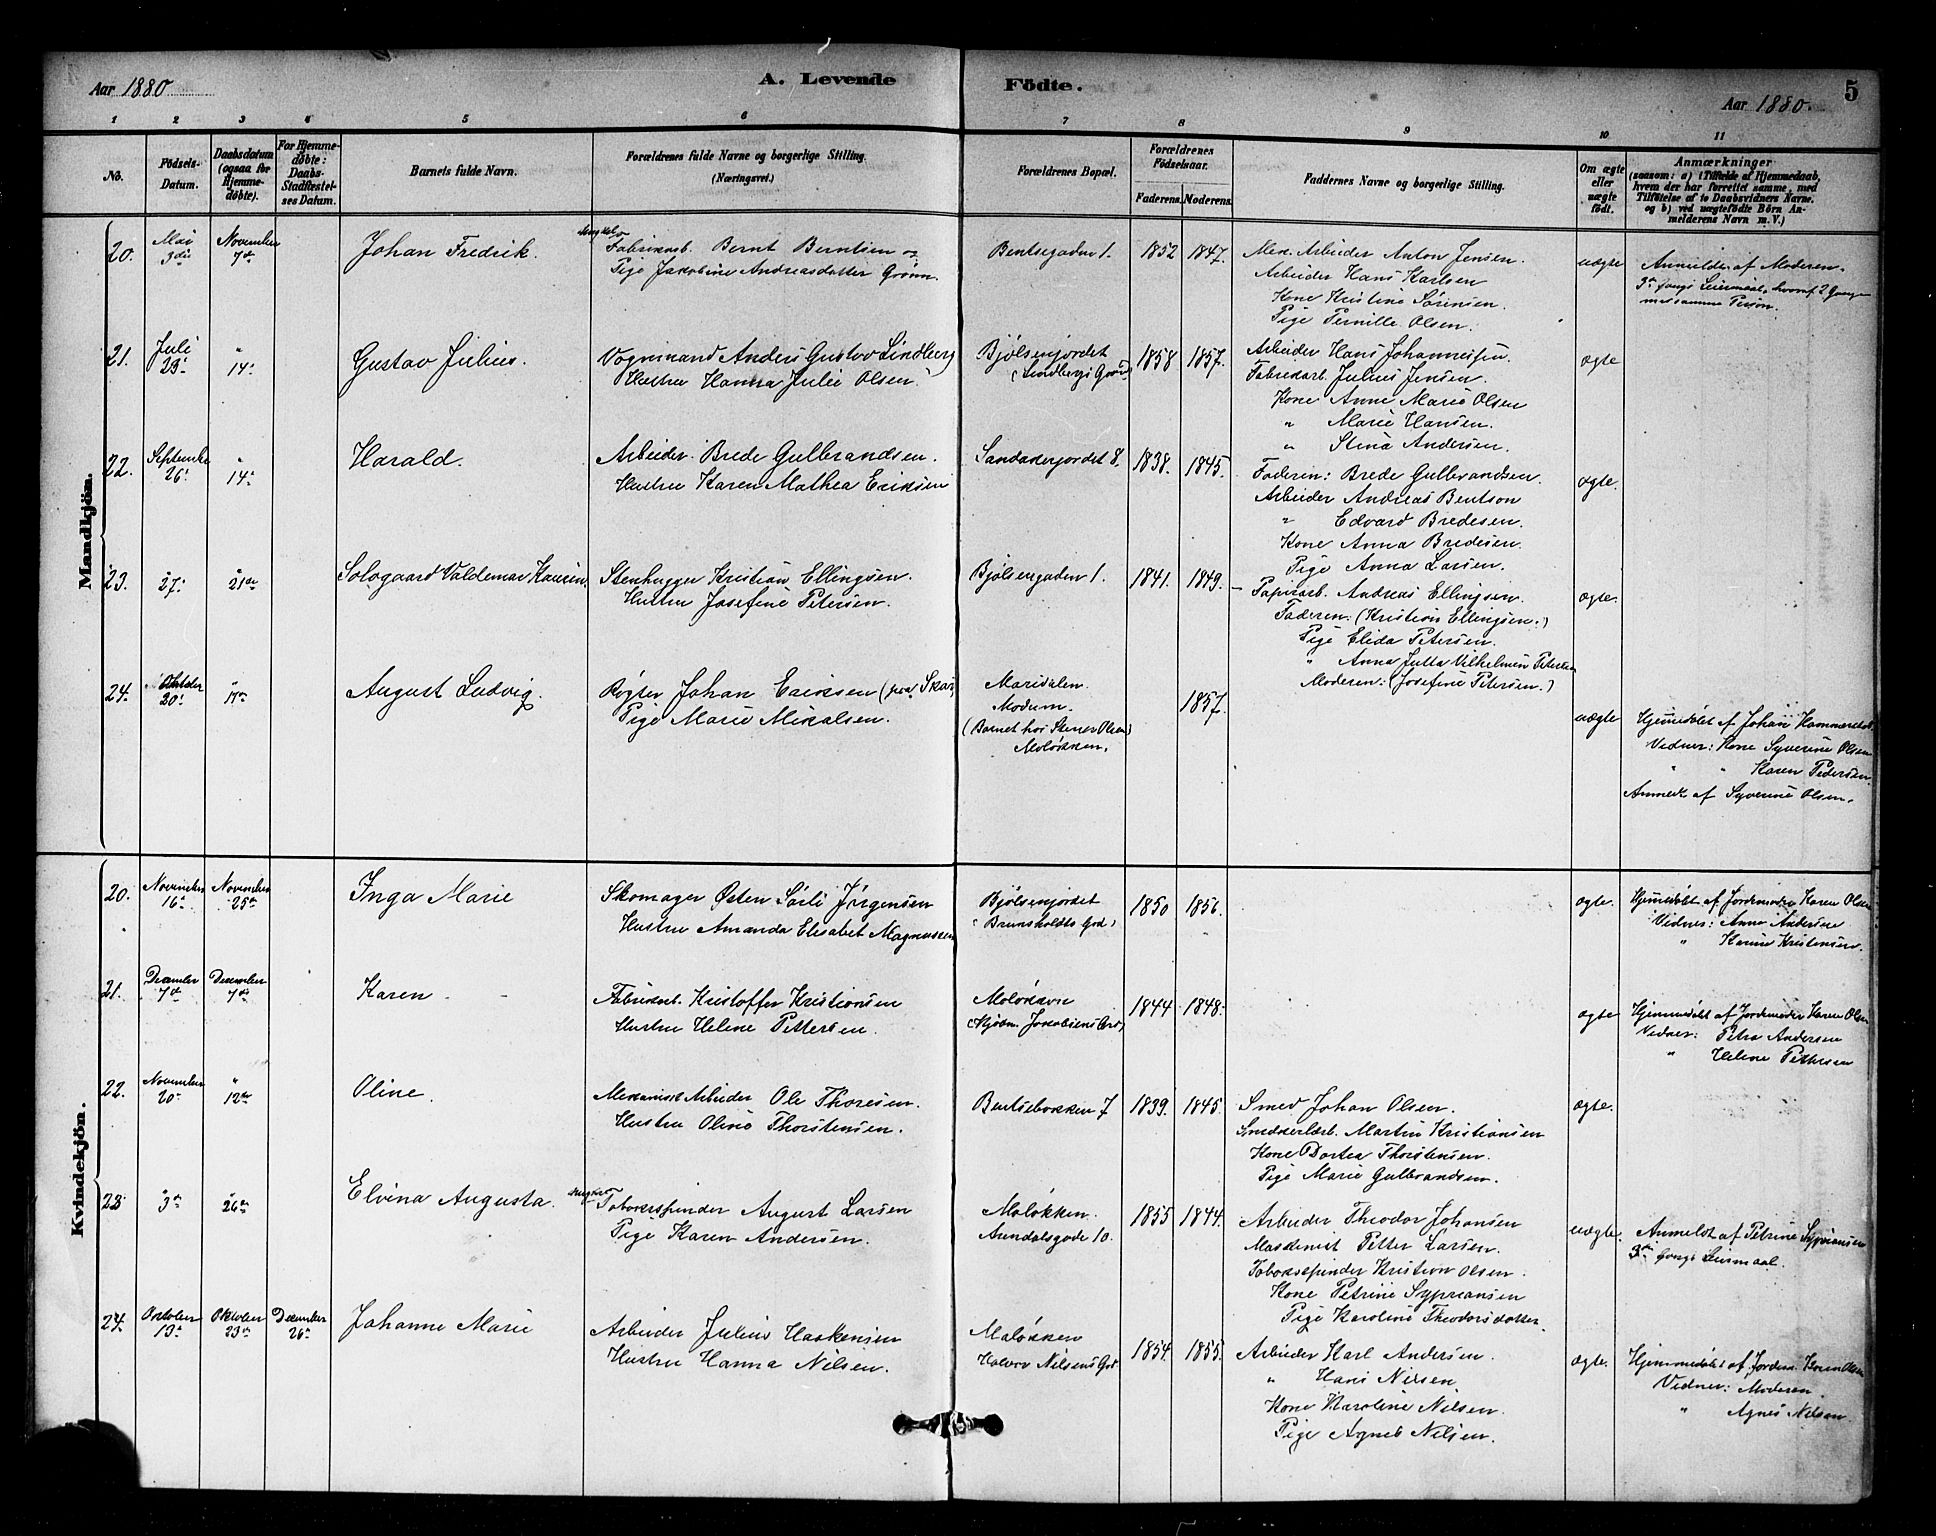 Aar 1880
A. Levende
Födte.
Aar 1880.
5
1 2 3 4 5 6 7 8 9 10 11
No.
Födsels-Datum.
Daabsdatum (ogsaa for Hjemmedöbte).
For Hjemmedöbte: Daabs-Stadfæstelses Datum.
Barnets fulde Navn.
Forældrenes fulde Navne og borgerlige Stilling. (Næringsvei.)
Forældrenes Bopæl.
Forældrenes Födselsaar.
Faderens. Moderens.
Faddernes Navne og borgerlige Stilling.
Om ægte eller uægte födt.
Anmærkninger
(saasom: a) i Tilfælde af Hjemmedaab, hvem der har forrettet samme, med Tilföielse af to Daabsvidners Navne. og b) ved uægtefödte Börn Anmelderens Navn m. V.)
Mandkjön.
20. Mai 3die November 7de Johan Fredrik.
Ungkarl Fabrikarb. Bernt Berntsen og
Pige Jakobine Andreasdatter Grønn.
Bentsegaden 1. 1852 1847.
Mek. Arbeider Anton Jensen.
Arbeider Hans Karlsen
Kone Kristine Sørensen.
Pige Pernille Olsen.
uægte
Anmeldt af Moderen.
3die Gangs Leiermaal, hvoraf 2 Gange
med samme Person.
21. Juli 23. " 14. Gustav Julius.
Vognmand Anders Gustav Lindberg
Hustru Hanna Julie Olsen.
Bjølsenjordet
(Lindbergs Gaard)
1858 1857.
Arbeider Hans Johannessen
Fabrikarb. Julius Jensen.
Kone Anne Marie Olsen
" Marie Hansen.
" Stina Andersen.
ægte
22. September 26. " 14. Harald.
Arbeider Brede Gulbrandsen.
Hustru Karen Mathea Eriksen
Sandakerjordet 8. 1838. 1845.
Faderen: Brede Gulbrandsen.
Arbeider Andreas Bentson
" Edvard Bredesen.
Kone Anna Bredesen.
Pige Anna Larsen.
ægte.
23. " 27. " 21de Sologaard Valdemar Kaurin.
Stenhugger Kristian Ellingsen.
Hustru Josefine Petersen.
Bjølsengaden 1. 1841. 1849.
Papirarb. Andreas Ellingsen.
Faderen: (Kristian Ellingsen.)
Pige Elida Petersen.
" Anna Jutta Vilhelmine Petersen
Moderen: (Josefine Petersen.)
ægte.
24. Oktober 20. " August Ludvig.
Røgter Johan Eriksen (paa Skar)
Pige Marie Mikalsen.
Maridalen.
Modum.
(Barnet hos Stener Olsen)
Moløkken.
1857.
uægte
Hjemmedøbt af Johan
Vidner: Kone Syverine Olsen
" " Karen Pedersen
Anmeldt af Syverine Olsen.
Kvindekjön.
20. November 16. November 25de Inga Marie
Skomager Østen Sørli Jørgensen
Hustru Amanda Elisabet Magnussen
Bjølsenjordet
(Brunsholdts Gd.)
1850 1856.
ægte.
Hjemmedøbt af Jordemoder Karen Olsen
Vidner: Anne Andersen
" Karine Kristensen.
21. December 7de December 7de Karen
Fabrikarb. Kristoffer Kristiansen
Hustru Helene Pettersen.
Moløkken
(Kjøbm. Jakobsens Grd)
1844 1848.
ægte
Hjemmedøbt af Jordemoder Karen Olsen
Vidner: Petra Andersen
" Helene Pettersen
22. November 20. " 12te Oline.
Mekanisk Arbeider Ole Thoresen.
Hustru Oline Thorstensen.
Bentsebakken 7 1839. 1845.
Smed Johan Olsen.
Snedkerarb. Martin Kristiansen
Kone Dortea Thorstensen.
Pige Marie Gulbrandsen.
ægte.
23 " 3de " 26de Elvina Augusta.
Ungkarl Tobaksspinder August Larsen
Pige Karen Andersen.
Moløkken.
Arendalsgade 10.
1855 1844.
Arbeider Theodor Johansen
Maskinist Petter Larsen.
Tobaksspinder Kristian Olsen.
Kone Petrine Syprïansen
Pige Karoline Theodorsdatter.
uægte.
Anmeldt af Petrine Syprïansen
3die Gangs Leiermaal.
24. Oktober 13. Oktober 23de December 26. Johanne Marie
Arbeider Julius Haakensen
Hustru Hanna Nilsen.
Moløkken
Halvor Nilsens Grd.
1854. 1855.
Arbeider Karl Andersen.
" Hans Nilsen
Kone Karoline Nilsen.
Pige Agnes Nilsen.
ægte.
Hjemmedøbt af Jordem. Karen Olsen
Vidner: Moderen.
" Agnes Nilsen.